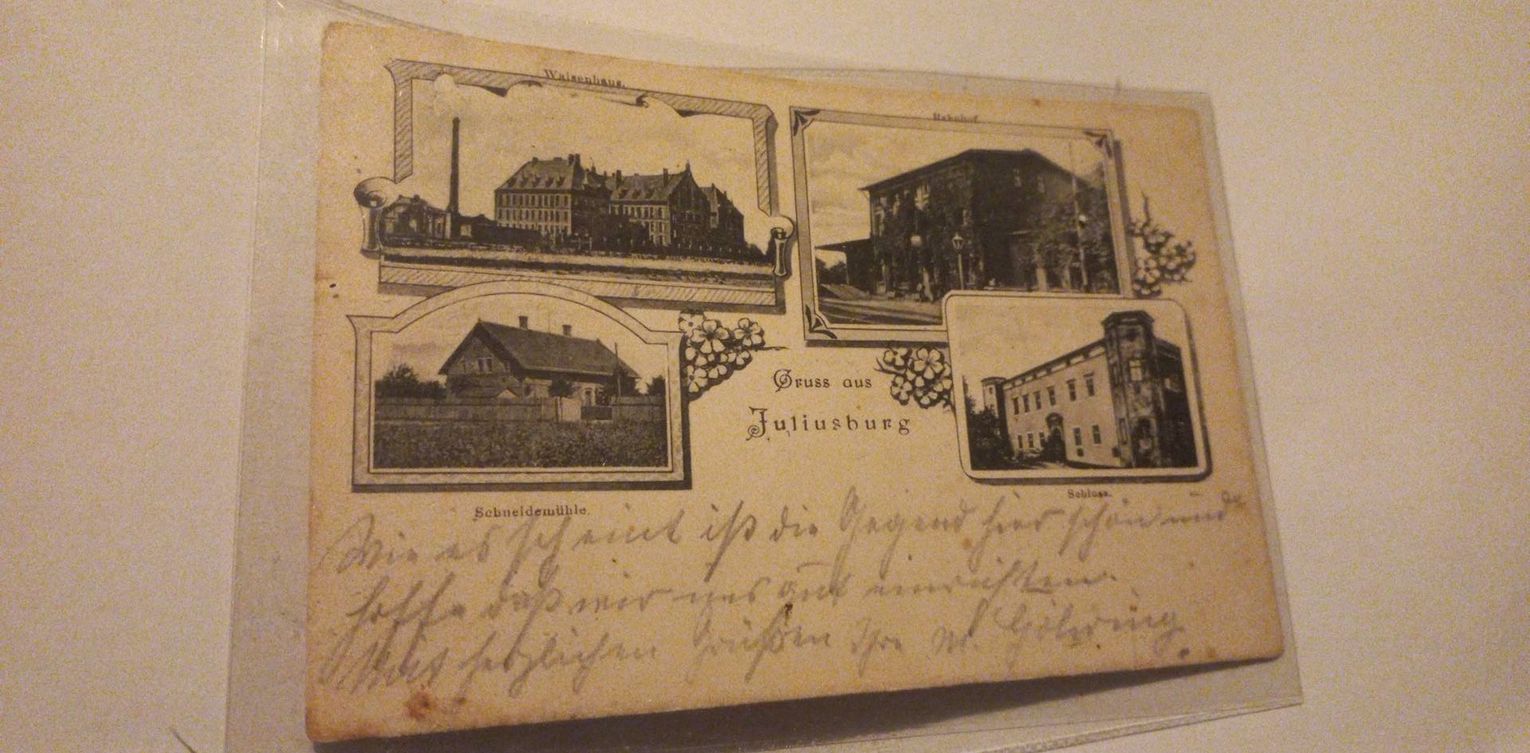 Waisenhaus.
Bahnhof.
Gruss aus
Juliusburg
Schneidemühle.
Schloss.
Wie es scheint ist die Gegend hier schön und
hoffe daß wir uns gut einrichten.
Mit herzlichen Grüßen Ihre M.